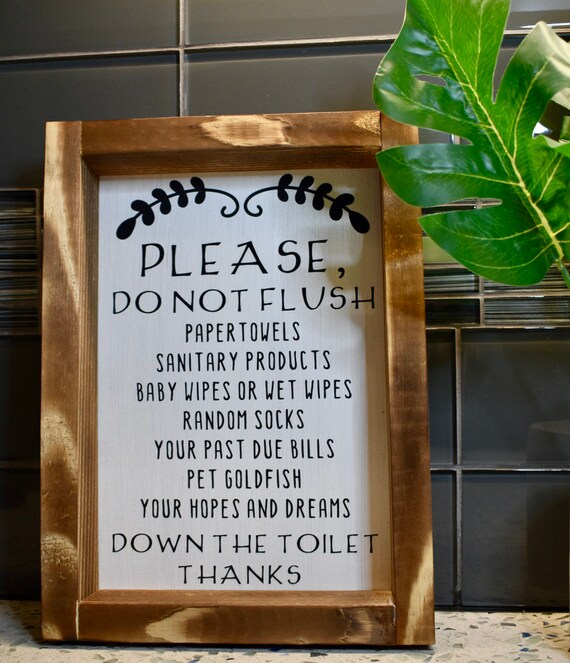 PLEASE,
DO NOT FLUSH
PAPERTOWELS
SANITARY PRODUCTS
BABY WIPES OR WET WIPES
RANDOM SOCKS
YOUR PAST DUE BILLS
PET GOLDFISH
YOUR HOPES AND DREAMS
DOWN THE TOILET
THANKS